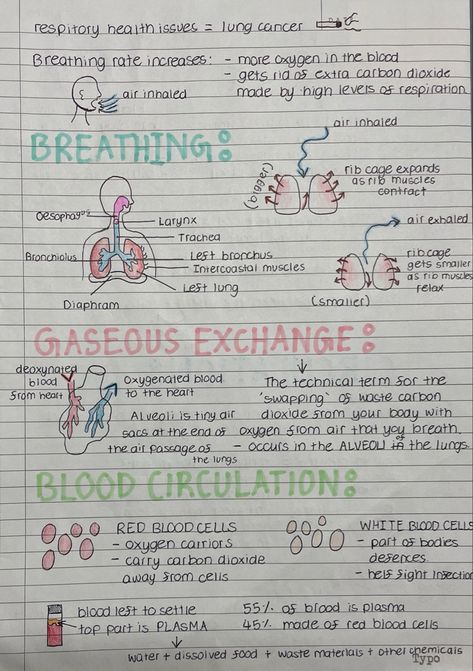 respitory health issues = lung cancer
Breathing rate increases: - more oxygen in the blood
- gets rid of extra carbon dioxide
made by high levels of respiration
air inhaled
BREATHING:
air inhaled
(bigger)
rib cage expands
as rib muscles
contract
Oesophagus
Larynx
Trachea
Bronchiolus
Left bronchus
Intercoastal muscles
Left lung
Diaphram
air exhaled
rib cage
gets smaller
as rib muscles
relax
(smaller)
GASEOUS EXCHANGE:
deoxynated
blood
from heart
oxygenated blood
to the heart
Alveoli is tiny air
sacs at the end of
the air passage of
the lungs
The technical term for the
'swapping' of waste carbon
dioxide from your body with
oxygen from air that you breath.
- occurs in the ALVEOLI of the lungs
BLOOD CIRCULATION:
RED BLOOD CELLS
- oxygen carriors
- carry carbon dioxide
away from cells
WHITE BLOOD CELLS
- part of bodies
defences
- help fight Insection
blood left to settle
top part is PLASMA
55% of blood is plasma
45% made of red blood cells
water + dissolved food + waste materials + other chemicals
Typo